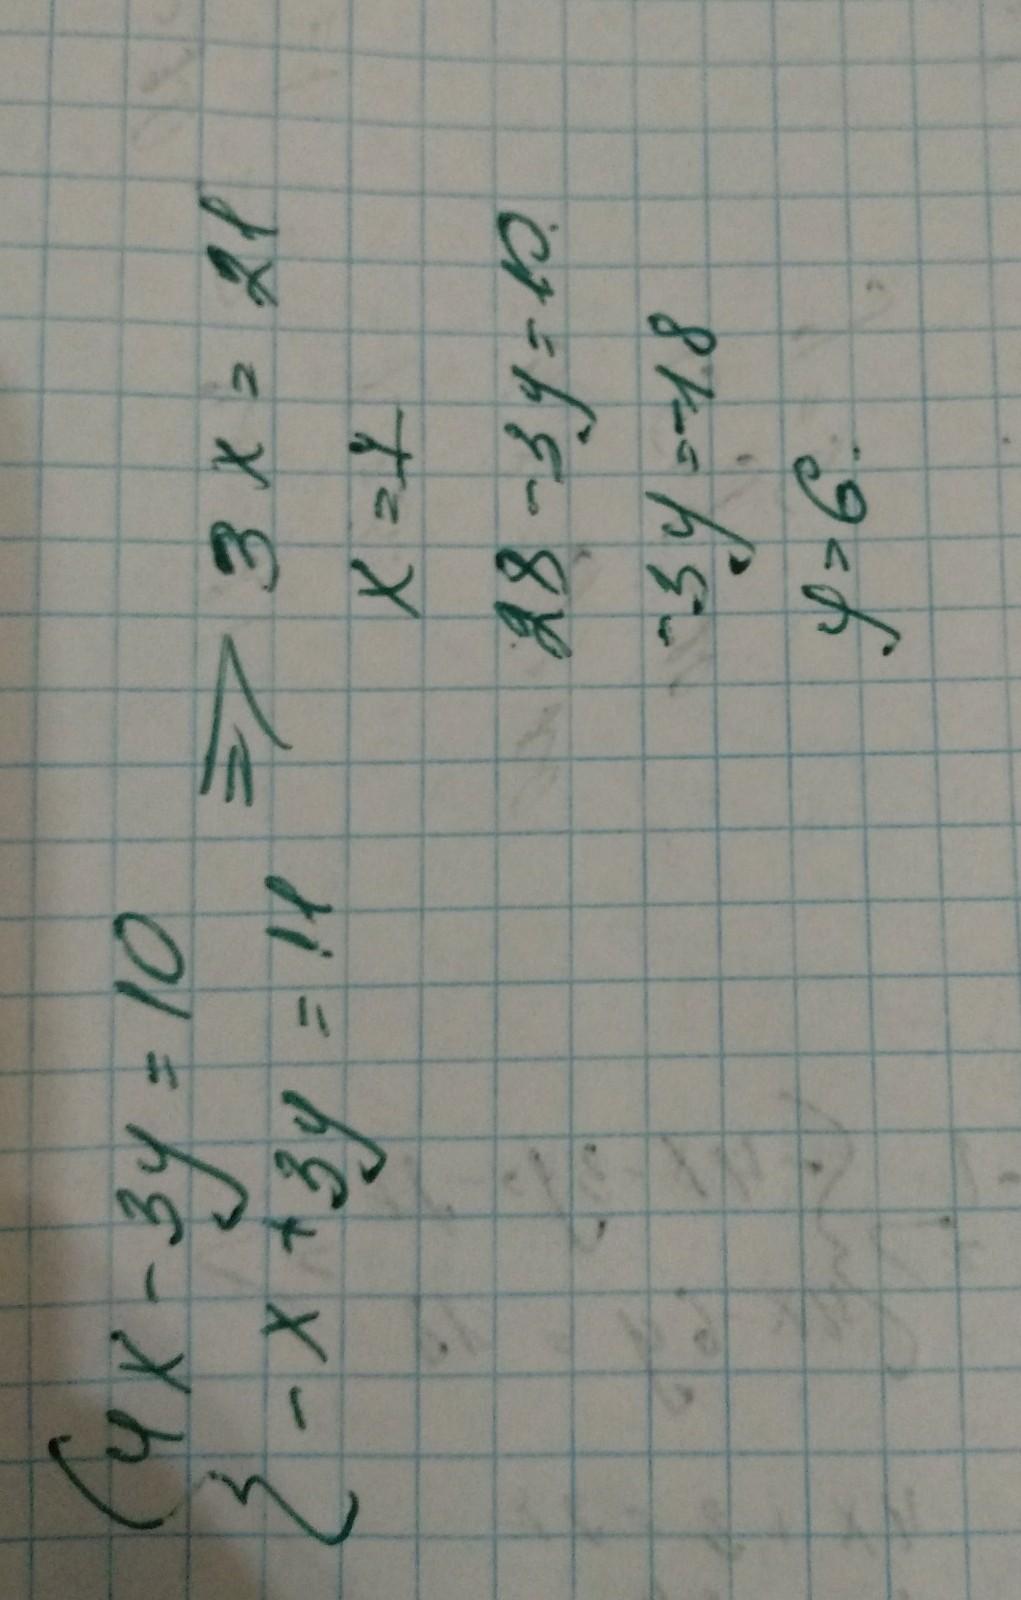 4x - 3y = 10
- x + 3y = 11
=> 3x = 21
x = 7
28 - 3y = 10.
-3y = -18
y = 6.